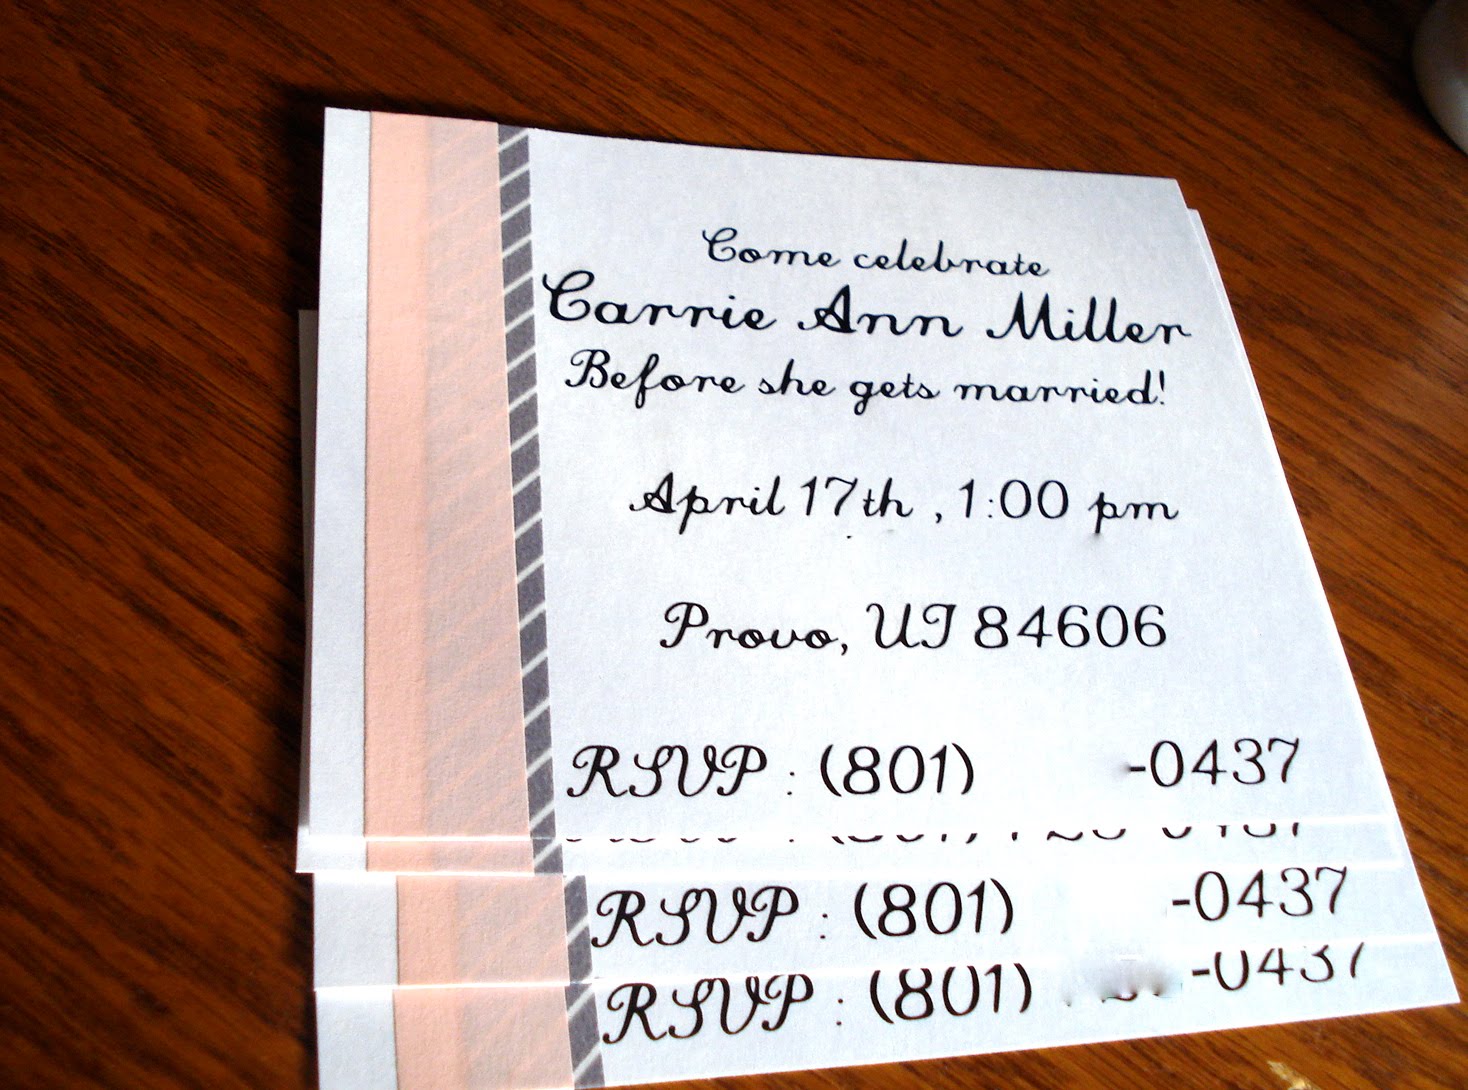 Come celebrate
Carrie Ann Miller
Before she gets married!
April 17th , 1:00 pm
Provo, UT 84606
RSVP : (801) -0437
RSVP : (801) -0437
RSVP : (801) -0437